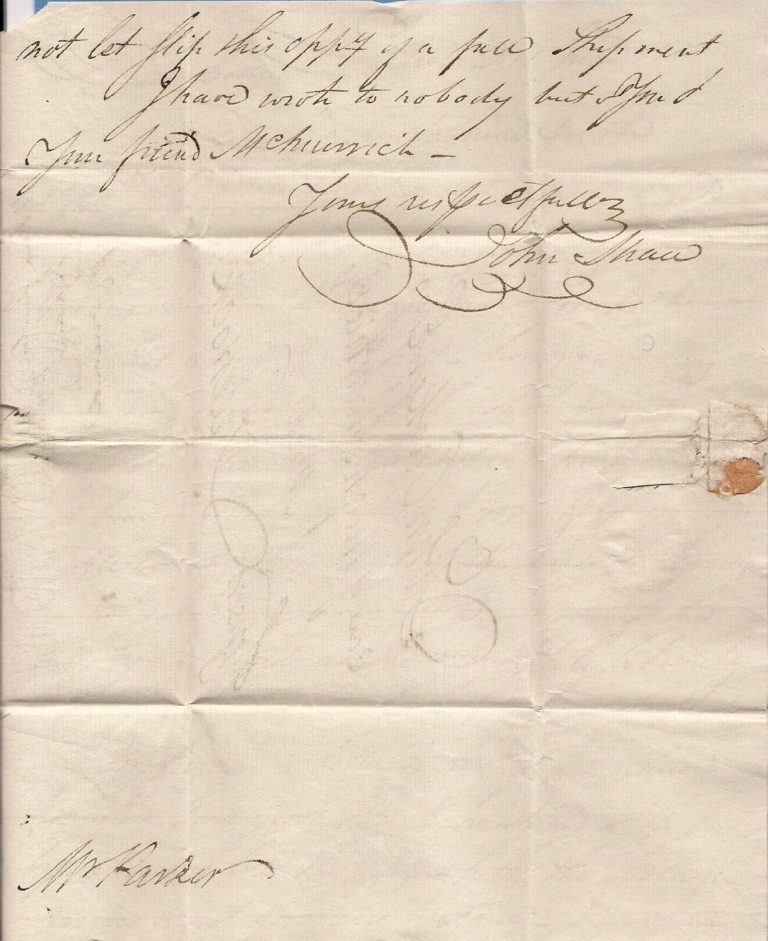 not let slip this oppy of a full Shipment
I have wrote to nobody but You &
Your friend
Yours respectfully
John Shaw
Mr Parker